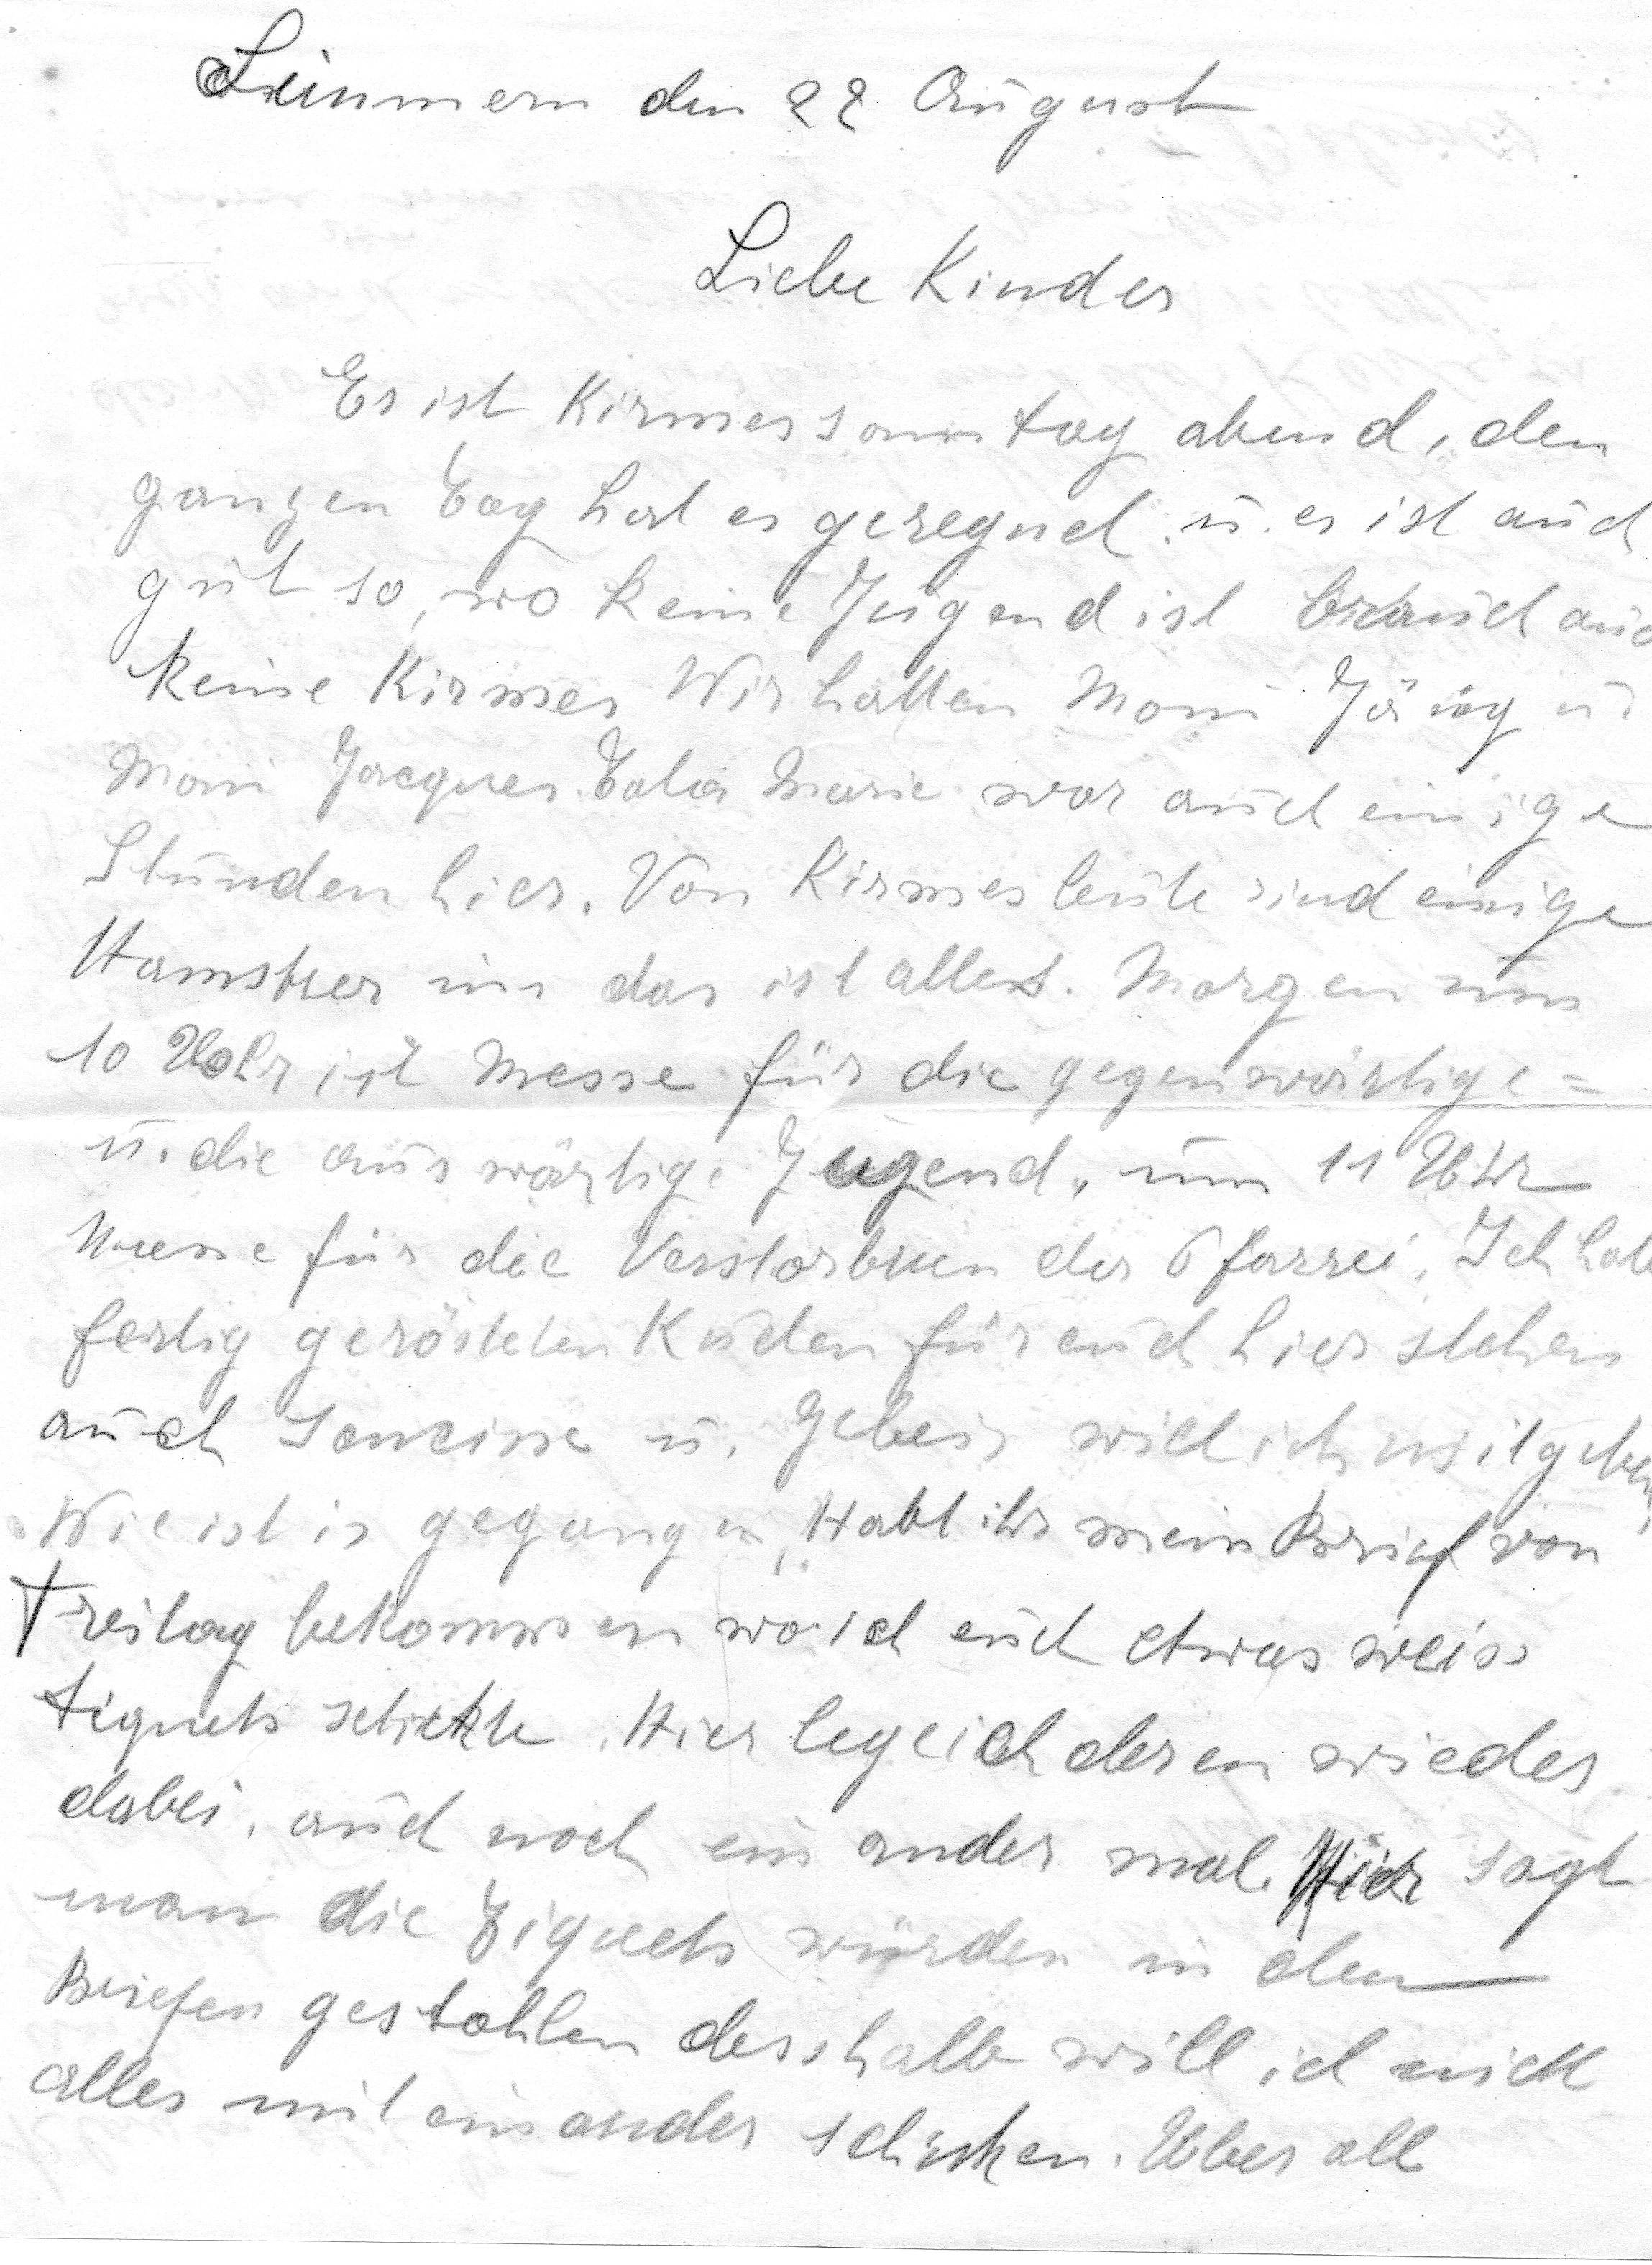 Simmern den 22 August
Liebe Kinder
Es ist Kirmessonntag abend, den
ganzen Tag hat es geregnet u. es ist auch
gut so, wo keine Jugend ist brauch auch
keine Kirmes Wir hatten Moni Jäng u.
Moni Jacques. Tata Marie war auch einige
Stunden hier. Von Kirmesleute sind einige
Hamstrer un das ist alles. Morgen um
10 Uhr ist Messe für die gegenwärtige=
u. die auswärtige Jugend, um 11 Uhr
Messe für die Verstorbnen der Pfarrei. Ich habe
fertig gerösteten Kuchen für euch hier stehen
auch u. Gebeis will ich mitgeben.
Wie ist is gegangen, Habt ihr mein Brief von
Freitag bekommen wo ich euch etwas weiss
tiquets schickte. Hier lege ich deren wieder
dabei, auch noch ein ander mal. Hier sagt
man die Tiquets würden in den
Briefen gestohlen desshalb will ich nicht
alles mit einander schicken. Uber all